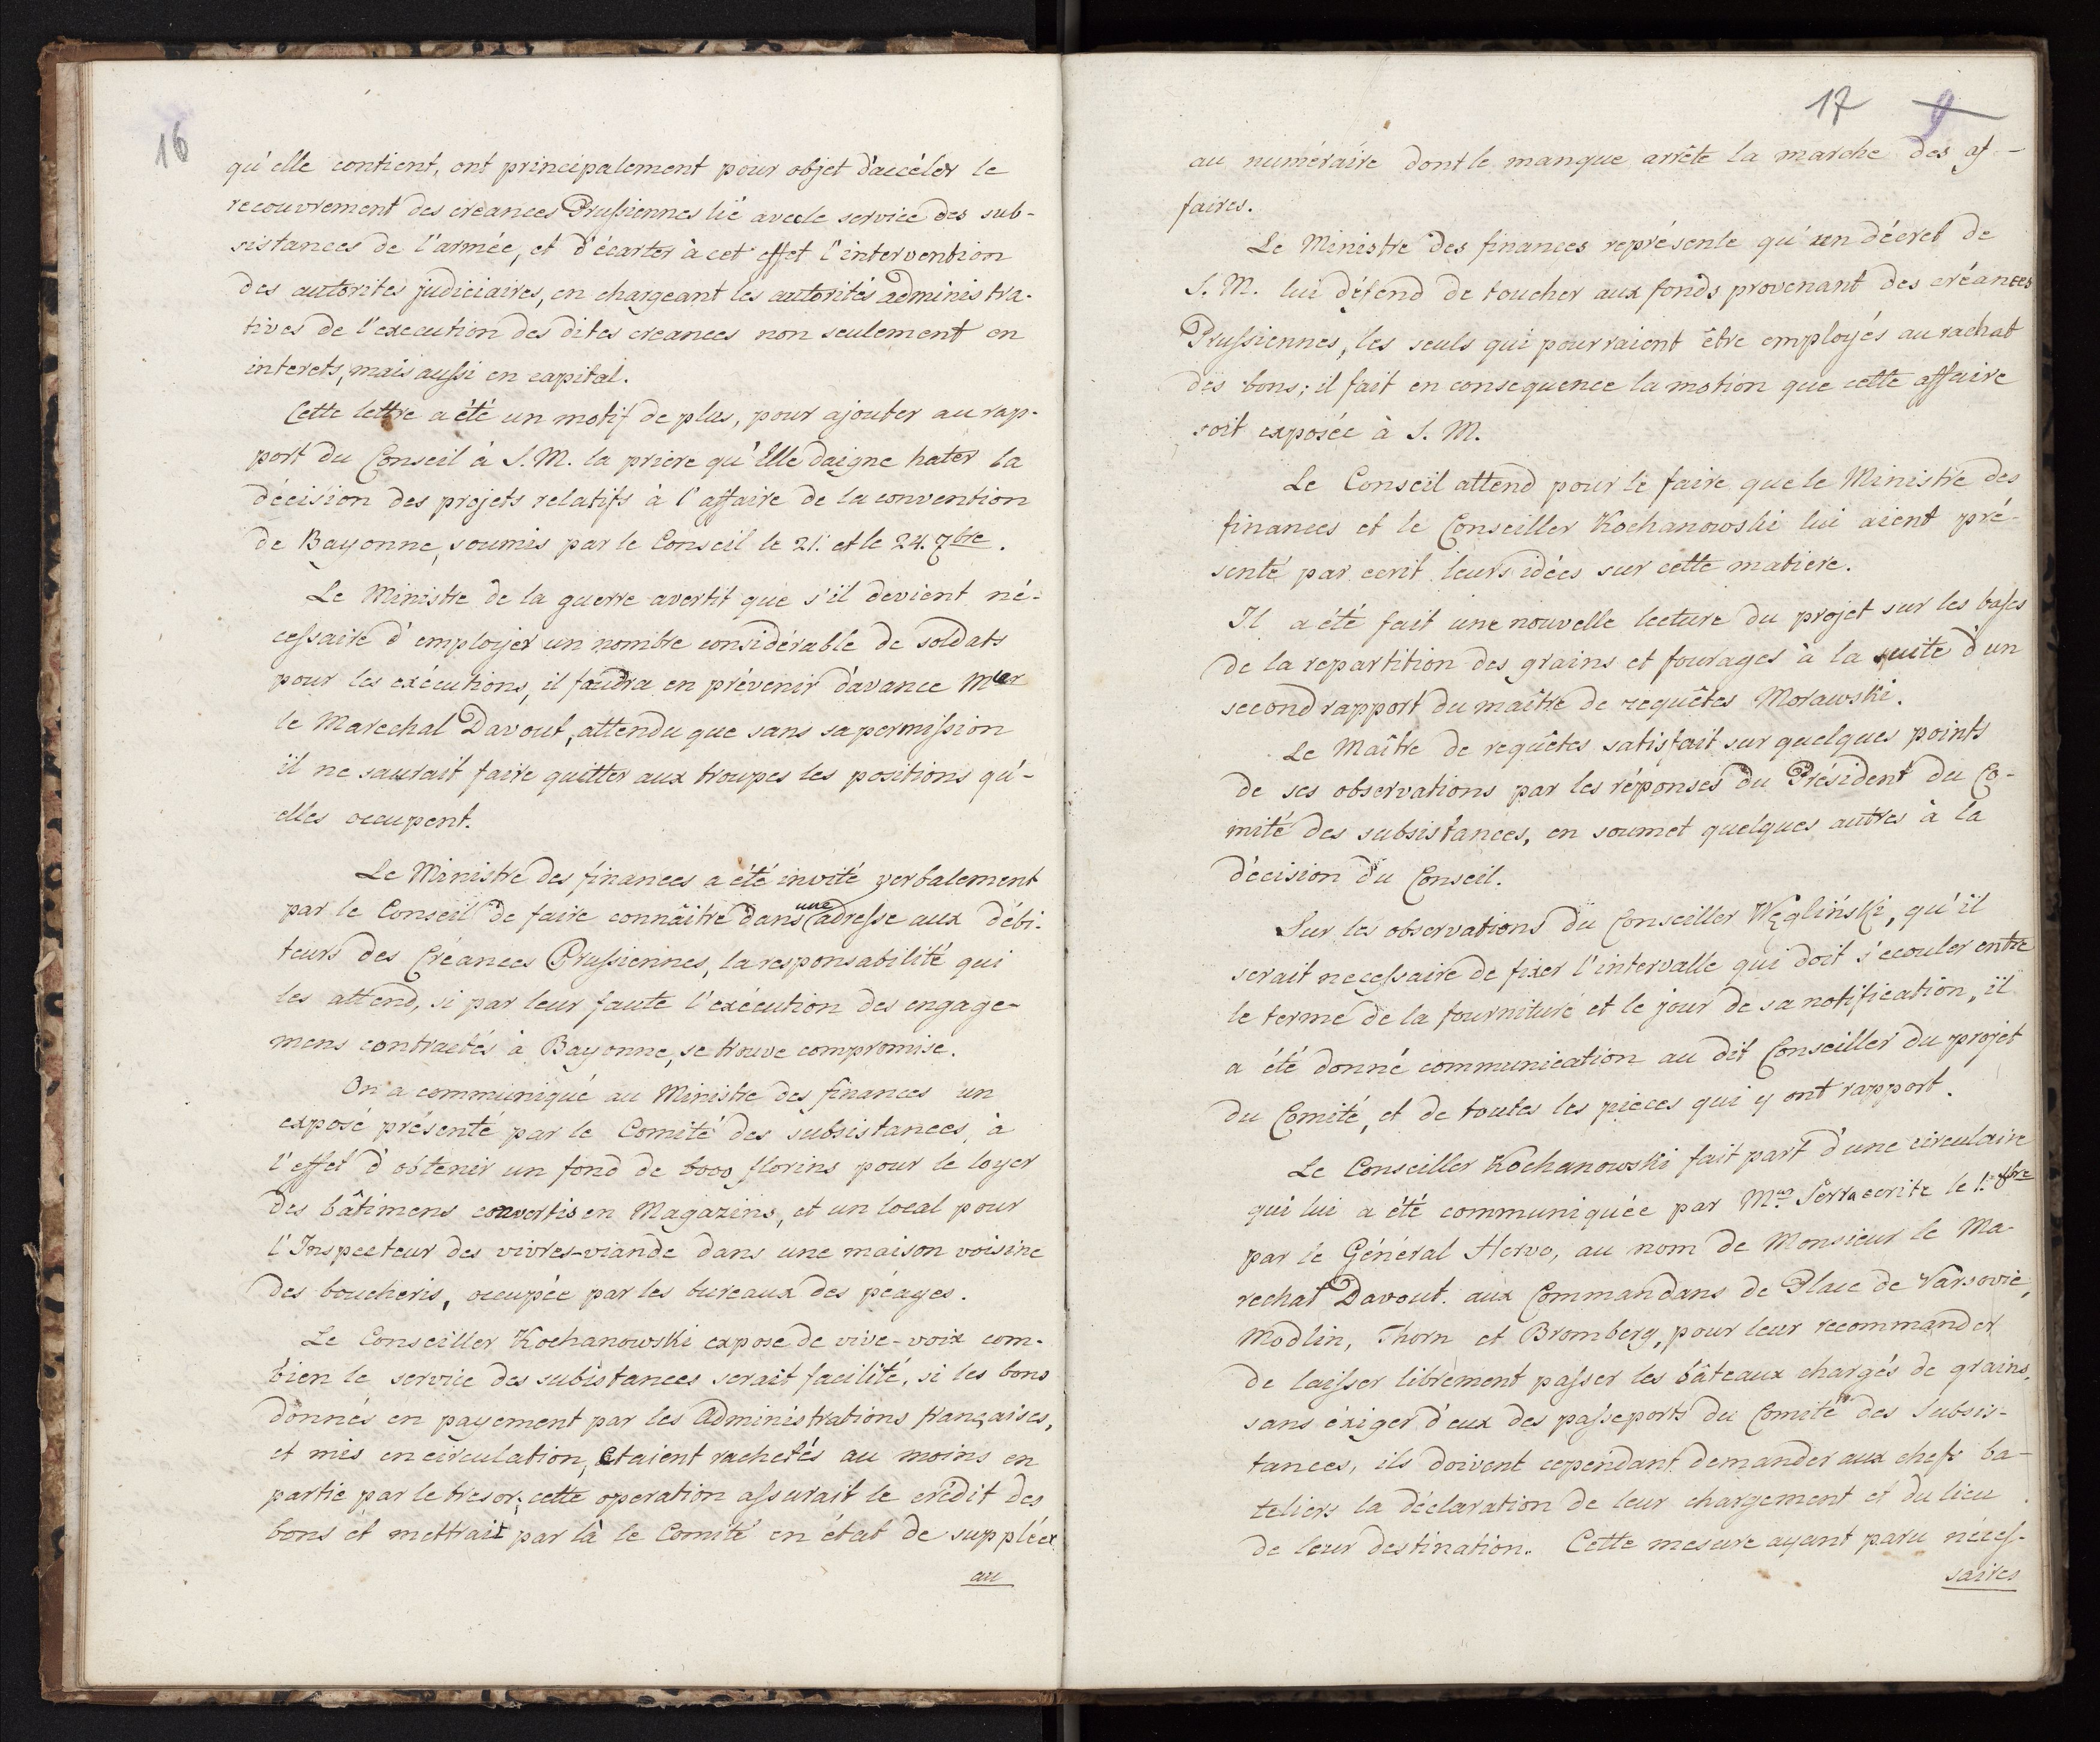 16
qu'elle contient, ont principalement pour objet d'accéler le
recouvrement des créances Prussiennes lié avecle service des sub-
sistances de l'armée, et d'écarter à cet effet l'intervention
des autorités judiciaires, en chargeant les autorités administra-
tives de l'execution des dites creances non seulement en
interets, mais aussi en capital.
Cette lettre a été un motif de plus, pour ajouter au rap-
port du Conseil à S. M. la priere qu'Elle daigne hater la
décision des projets relatifs à l'affaire de la convention
de Bayonne, soumis par le Conseil le 21. et le 24. 7bre.
Le Ministre de la guerre avertit que s'il devient né-
cessaire d'employer un nombre considérable de soldats
pour les exécutions, il faudra en prévenir d'avance Mur
le Marechal Davout, attendu que sans sa permission
il ne saurait faire quitter aux troupes les positions qu'-
elles occupent.
Le Ministre des finances a été invité verbalement
par le Conseil de faire connâitre dans une adresse aux débi-
teurs des Créances Prussiennes, la responsabilité qui
les attend, si par leur faute l'exécution des engage-
mens contractés à Bayonne, se trouve compromise.
On a communiqué au Ministre des finances un
exposé présenté par le Comité des subsistances, à
l'effet d'obtenir un fond de 6000 florins pour le loyer
des bâtimens convertis en Magazins, et un local pour
l'Inspecteur des vivres-viande dans une maison voisine
des boucheris, occupée par les bureaux des péages.
Le Conseiller Kochanowski expose de vive-voix com-
bien le service des subistances serait facilité, si les bons
donnés en payement par les Administrations françaises,
et mis en circulation, étaient rachetés au moins en
partie par le tresor; cette operation assurait le crédit des
bons et mettrait par là le Comité en état de suppléer
au
17 9
au numéraire dont le manque arrête la marche des af-
faires.
Le Ministre des finances représente qu'un décret de
S. M. lui défend de toucher aux fonds provenant des créances
Prussiennes, les seuls qui pourraient être employés au rachat
des bons; il fait en consequence la motion que cette affaire
soit exposée à S. M.
Le Conseil attend pour le faire que le Ministre des
finances et le Conseiller Kochanowski lui aient pré-
senté par ecrit leurs idées sur cette matiere.
Il a été fait une nouvelle lecture du projet sur les bases
de la repartition des grains et fourages à la suite d'un
second rapport du maître de requêtes Morawski.
Le Maître de requêtes satisfait sur quelques points
de ses observations par les réponses du Président du Co-
mité des subsistances, en soumet quelques autres à la
décision du Conseil.
Sur les observations du Conseiller Węgliński, qu'il
serait necessaire de fixer l'intervalle qui doit s'ecouler entre
le terme de la fourniture et le jour de sa notification, il
a été donné communication au dit Conseiller du projet
du Comité, et de toutes les pièces qui y ont rapport.
Le Conseiller Kochanowski fait part d'une circulaire
qui lui a été communiquée par Mr. Serra ecrite le 1. 8bre
par le Général Hervo, au nom de Monsieur le Ma-
rechat Davout. aux Commandans de Place de Varsovie,
Modlin, Thorn et Bromberg, pour leur recommander
de laisser librement passer les bâteaux chargés de grains,
sans éxiger d'eux des passeports du Comité des Subsis-
tances, ils doivent cependant demander aux chefs ba-
teliers la déclaration de leur chargement et du lieu
de leur destination. Cette mesure ayant paru néces-
saires